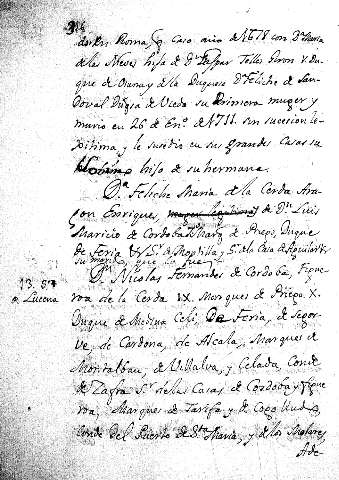 316
do en Roma, Caso año de 1678 con Dª Maria
de las Nieves hija de Dn Gaspar Telles Giron V. Du-
que de Osuna y de la Duquesa Dª Feliche de San-
doval Duqsa de Uceda su primera muger y
murio en 26 de Enº de 1711. sin sucesion le-
xitima, y le susedio en sus grandes Casas su
sobrino hijo de su hermana.
Dª Feliche Maria de la Cerda Ara-
gon Enriques, muger de Dn Luis
Mauricio de Cordoba Marq de Priego, Duque
de Feria Sr de Montilla y Sr de la Casa de Aguilar
su marido que la fue
Dn Nicolas Fernandes de Cordoba, Figue-
13. 5º
a Lucena
roa de la Cerda IX. Marques de Priego. X.
Duque de Medina Celi, De Feria, de Segor-
ve, de Cardona, de Alcala, Marques de
Montalban, de Villalva, y Celada, Conde
de Zafra Sr de las Casas de Cordoba y Figue
roa, Marques de Tarifa y de Cogolludo,
Conde del Puerto de Sta Maria, y de los Molares
Ade-